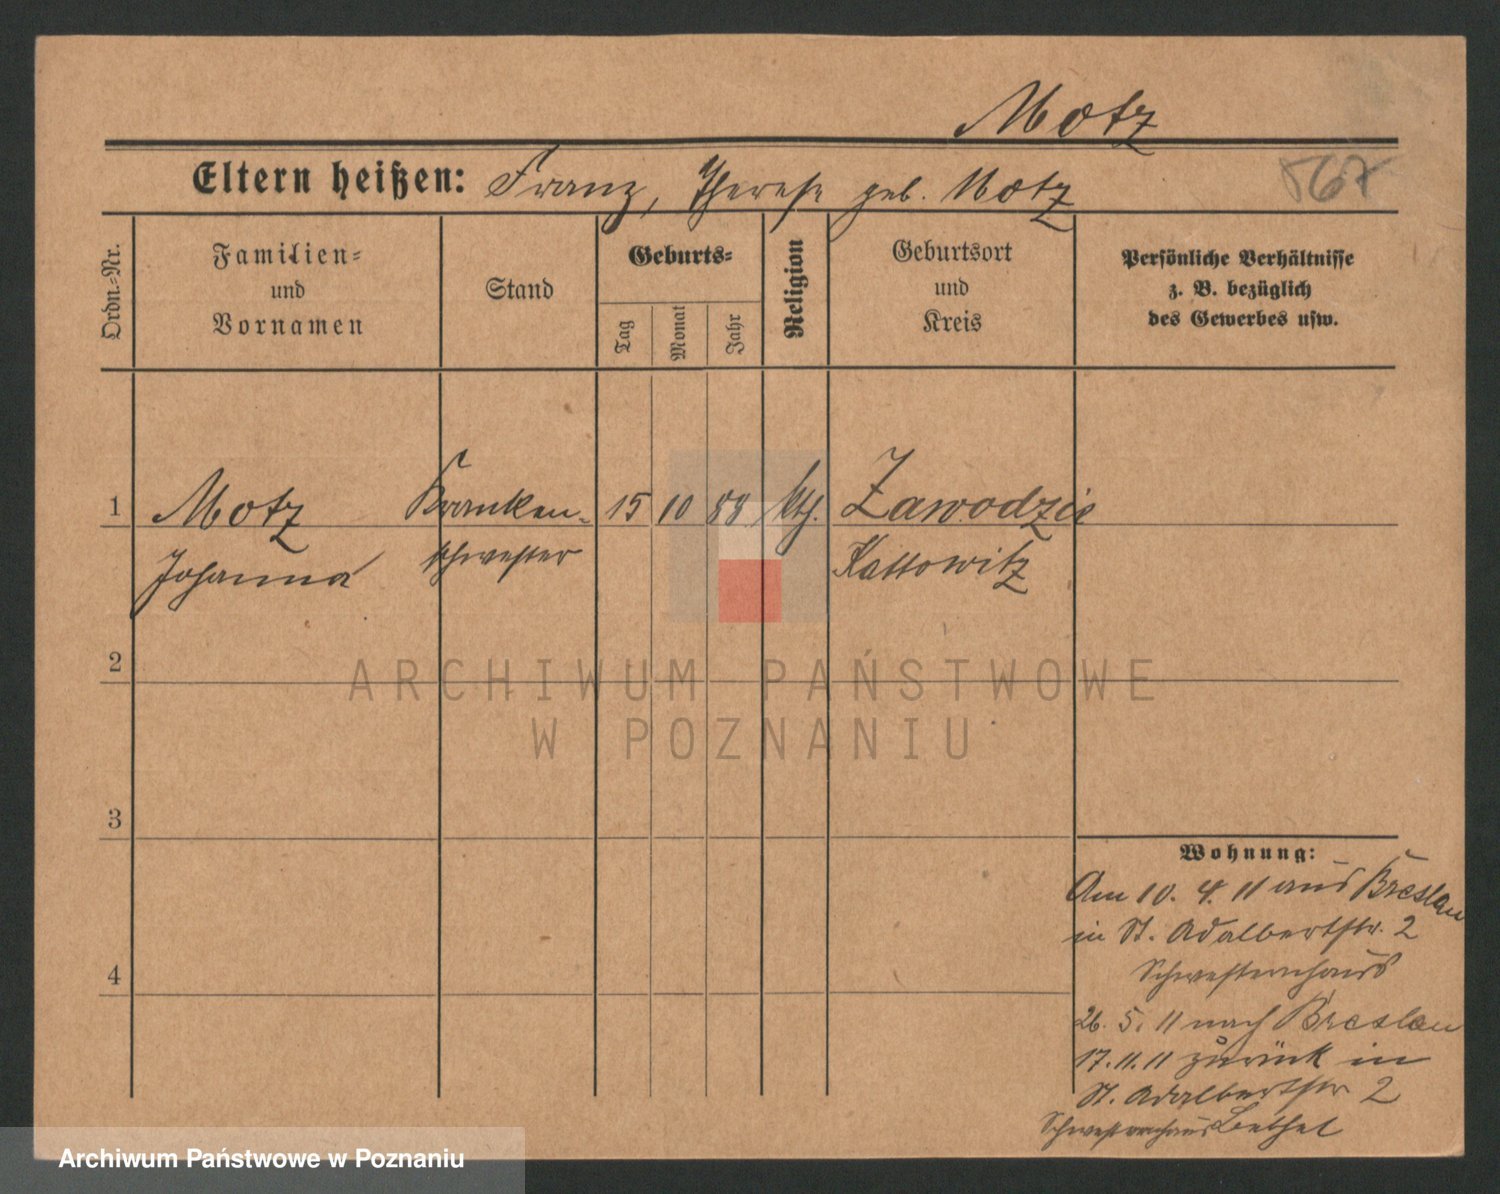 Motz
567
Eltern heißen: Franz, Therese geb. Motz
Ordn.-Nr.
Familien-
und
Vornamen
Stand
Geburts-
Tag
Monat
Jahr
Religion
Geburtsort
und
Kreis
Persönliche Verhältnisse
z. B. bezüglich
des Gewerbes usw.
1 Motz Kranken- 15 10 88 kth. Zawodzie
Johanna schwester Kattowitz
2
ARCHIWUM PAŃSTWOWE
W POZNANIU
3
Wohnung:
Am 10. 4. 11 aus Breslau
in St. Adalbertstr. 2
Schwesternhaus
4
26. 5. 11 nach Breslau
17. 11. 11 zurück in
St. Adalbertstr 2
Schwesternhaus Bethel
Archiwum Państwowe w Poznaniu